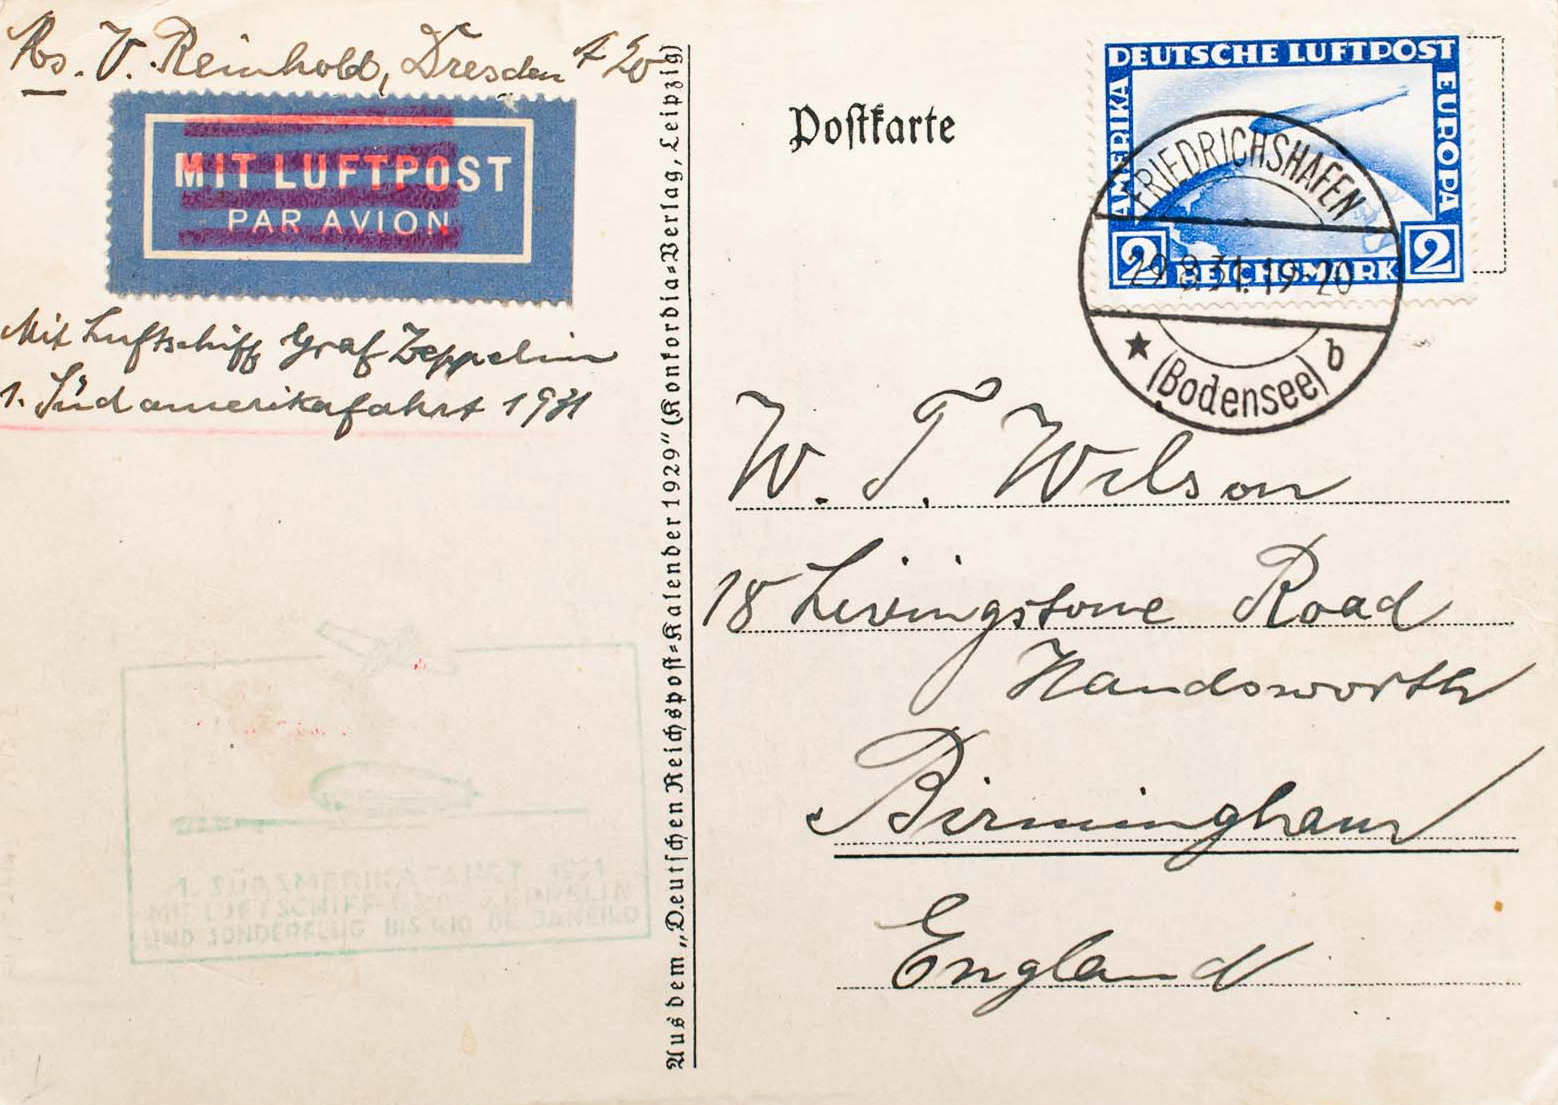 Abs. V. Reinhold, Dresden A 20
MIT LUFTPOST
PAR AVION
Mit Luftschiff Graf Zeppelin
1. Südamerikafahrt 1931
1. SÜDAMERIKAFAHRT 1931
MIT LUFTSCHIFF GRAF ZEPPELIN
UND SONDERFLUG BIS RIO DE JANEIRO
Aus dem „Deutschen Reichspost-Kalender 1929“ (Konkordia-Verlag, Leipzig)
Postkarte
DEUTSCHE LUFTPOST
AMERIKA
EUROPA
2 REICHSMARK 2
FRIEDRICHSHAFEN
29.8.31.19-20
(Bodensee) b
W. T. Wilson
18 Livingstone Road
Handsworth
Birmingham
England